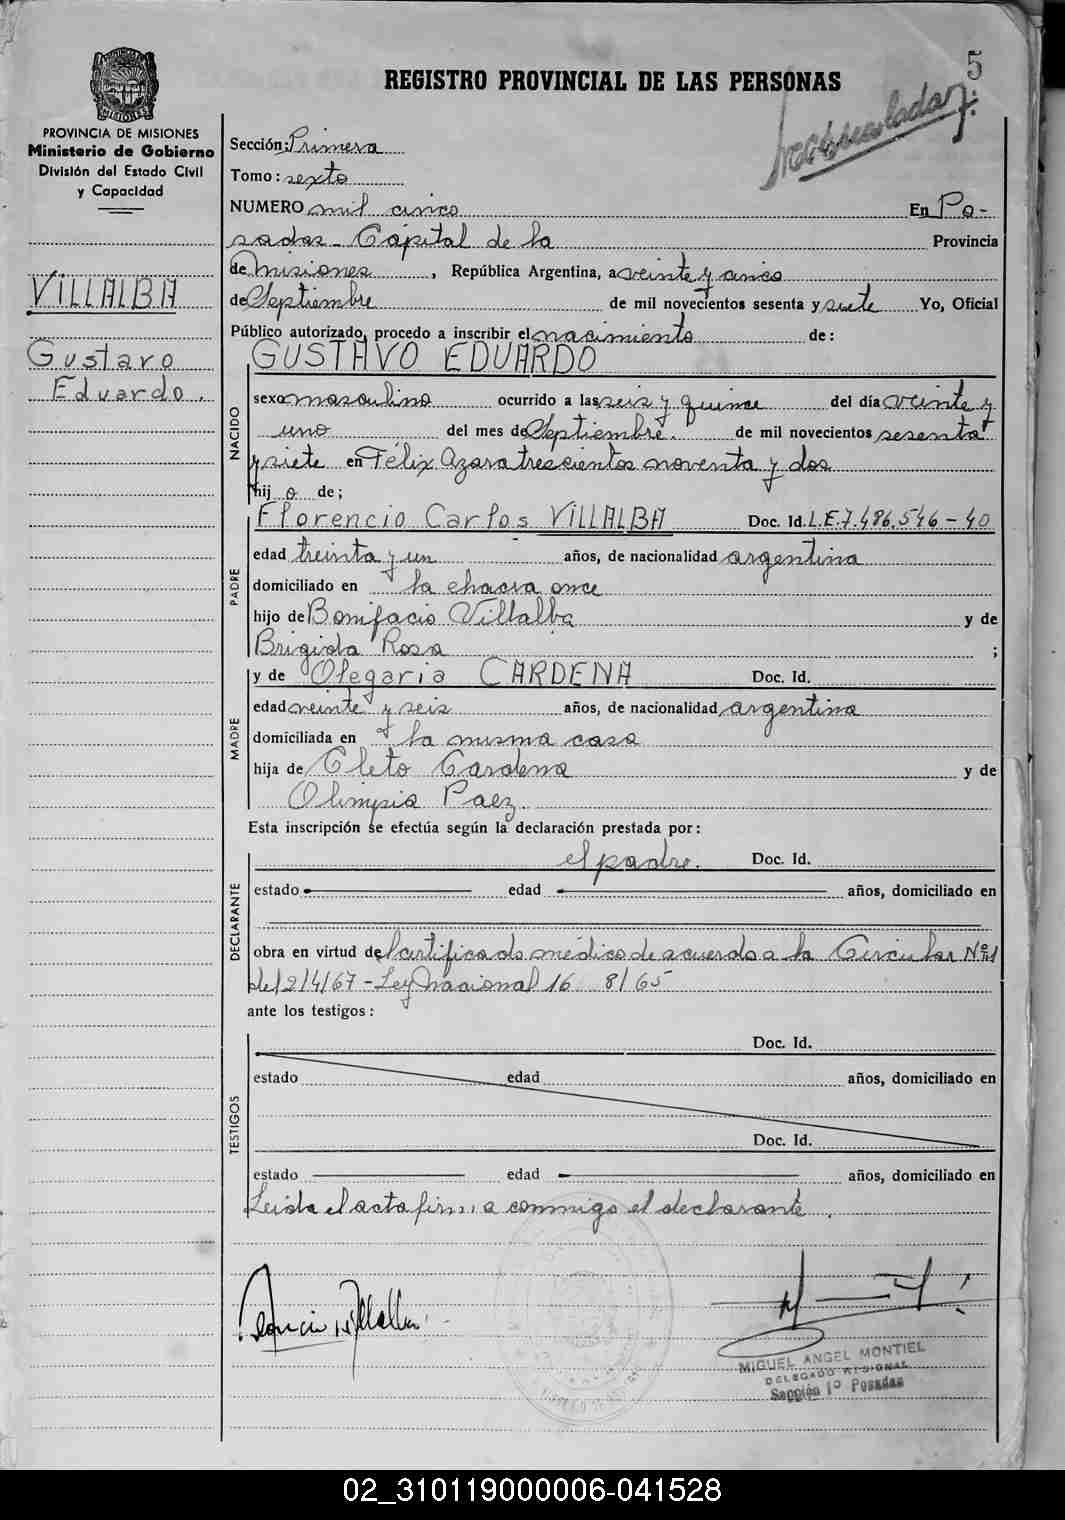 5
REGISTRO PROVINCIAL DE LAS PERSONAS
PROVINCIA DE MISIONES
Ministerio de Gobierno
División del Estado Civil
y Capacidad
VILLALBA
Gustavo
Eduardo.
Sección: Primera
Tomo: sexto
NUMERO mil cinco En Po-
sadas - Capital de la Provincia
de Misiones, República Argentina, a veinte y cinco
de Septiembre de mil novecientos sesenta y siete Yo, Oficial
Público autorizado, procedo a inscribir el nacimiento de:
GUSTAVO EDUARDO
NACIDO
sexo masculino ocurrido a las seis y quince del día veinte y
uno del mes de Septiembre. de mil novecientos sesenta
y siete en Félix Azara trescientos noventa y dos
hij o de;
Florencio Carlos VILLALBA Doc. Id. L.E.7.486.546-40
PADRE
edad treinta y un años, de nacionalidad argentina
domiciliado en la chacra once
hijo de Bonifacio Villalba y de
Brigida Rosa ;
y de Olegaria CARDENA Doc. Id.
MADRE
edad veinte y seis años, de nacionalidad argentina
domiciliada en la misma casa
hija de Cleto Cardena y de
Olimpia Paez.
Esta inscripción se efectúa según la declaración prestada por:
el padre. Doc. Id.
DECLARANTE
estado edad años, domiciliado en
obra en virtud de Certificado médico de acuerdo a la Circular Nº 21
del 2/4/67 - Ley Nacional 16 8/65
ante los testigos:
TESTIGOS
Doc. Id.
estado edad años, domiciliado en
Doc. Id.
estado edad años, domiciliado en
Leida el acta firma conmigo el declarante.
MIGUEL ANGEL MONTIEL
DELEGADO REGIONAL
Sección 1º Posadas
02_310119000006-041528